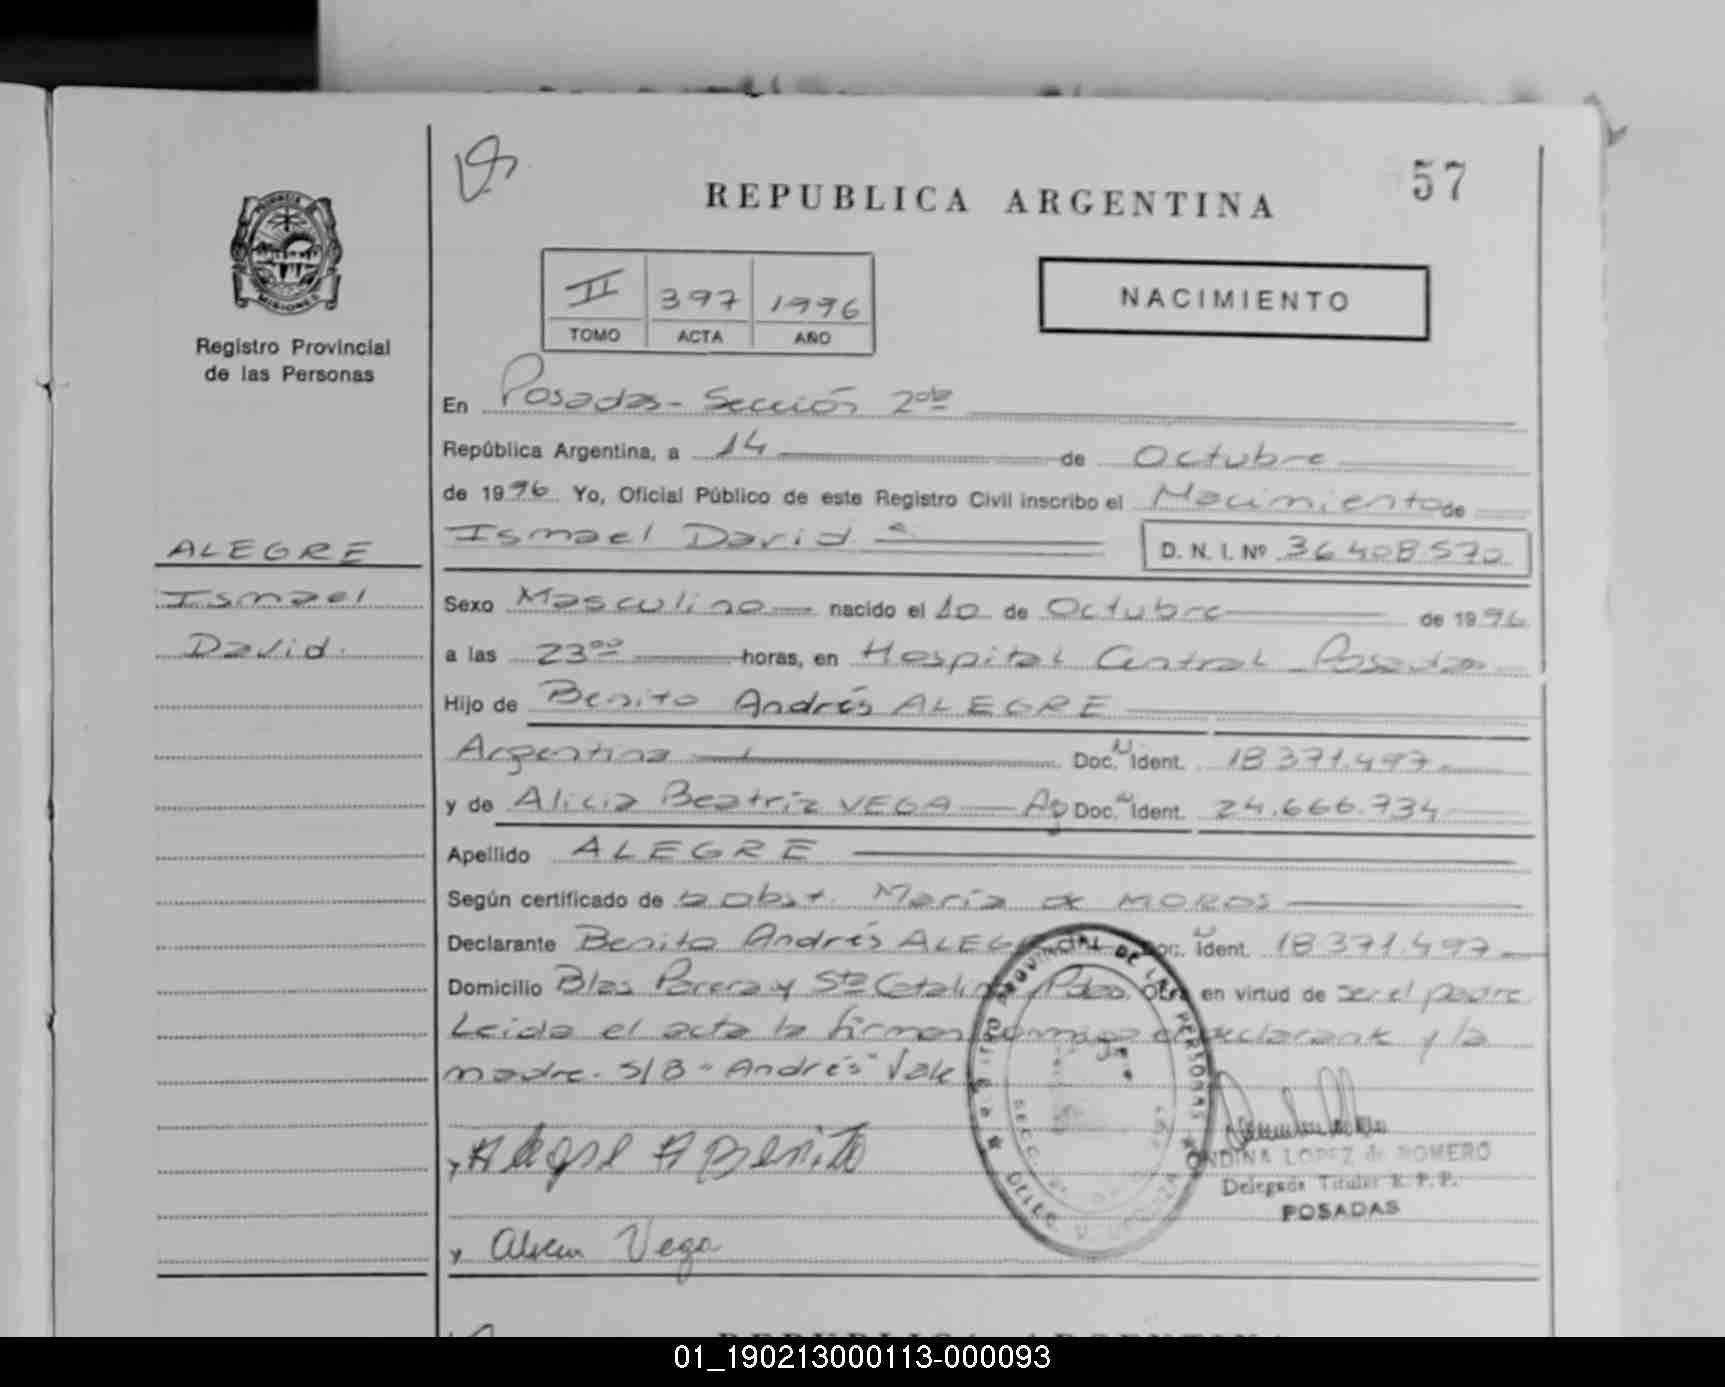 57
REPUBLICA ARGENTINA
PROVINCIA
MISIONES
Registro Provincial
de las Personas
II 397 1996
TOMO ACTA AÑO
NACIMIENTO
En Posadas - Sección 2da
República Argentina, a 14 de Octubre
de 1996 Yo, Oficial Público de este Registro Civil inscribo el Nacimiento de
Ismael David D. N. I. Nº 36408570
ALEGRE
Ismael
David.
Sexo Masculino nacido el 10 de Octubre de 1996
a las 23 00 horas, en Hospital Central Posadas
Hijo de Benito Andrés ALEGRE
Argentina Doc. N Ident. 18371.497
y de Alicia Beatriz VEGA Ag Doc. N Ident. 24.666.734
Apellido ALEGRE
Según certificado de la Obst. María de MOROS
Declarante Benito Andrés ALEG Doc. N Ident. 18371.497
Domicilio Blas Parera y Sta Catalina Pdas. Obra en virtud de ser el padre
Leida el acta la firman conmigo el declarante y la
madre. S/B "Andrés" Vale
Alegre A Benito
Vega
ONDINA LOPEZ de ROMERO
Delegada Titular R. P. P.
POSADAS
REPUBLICA ARGENTINA
01_190213000113-000093